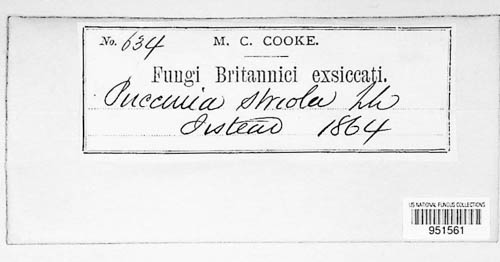 No. 634 M. C. COOKE.
Fungi Britannici exsiccati.
Puccinia striola Lk
Irstead 1864
US NATIONAL FUNGUS COLLECTIONS
951561